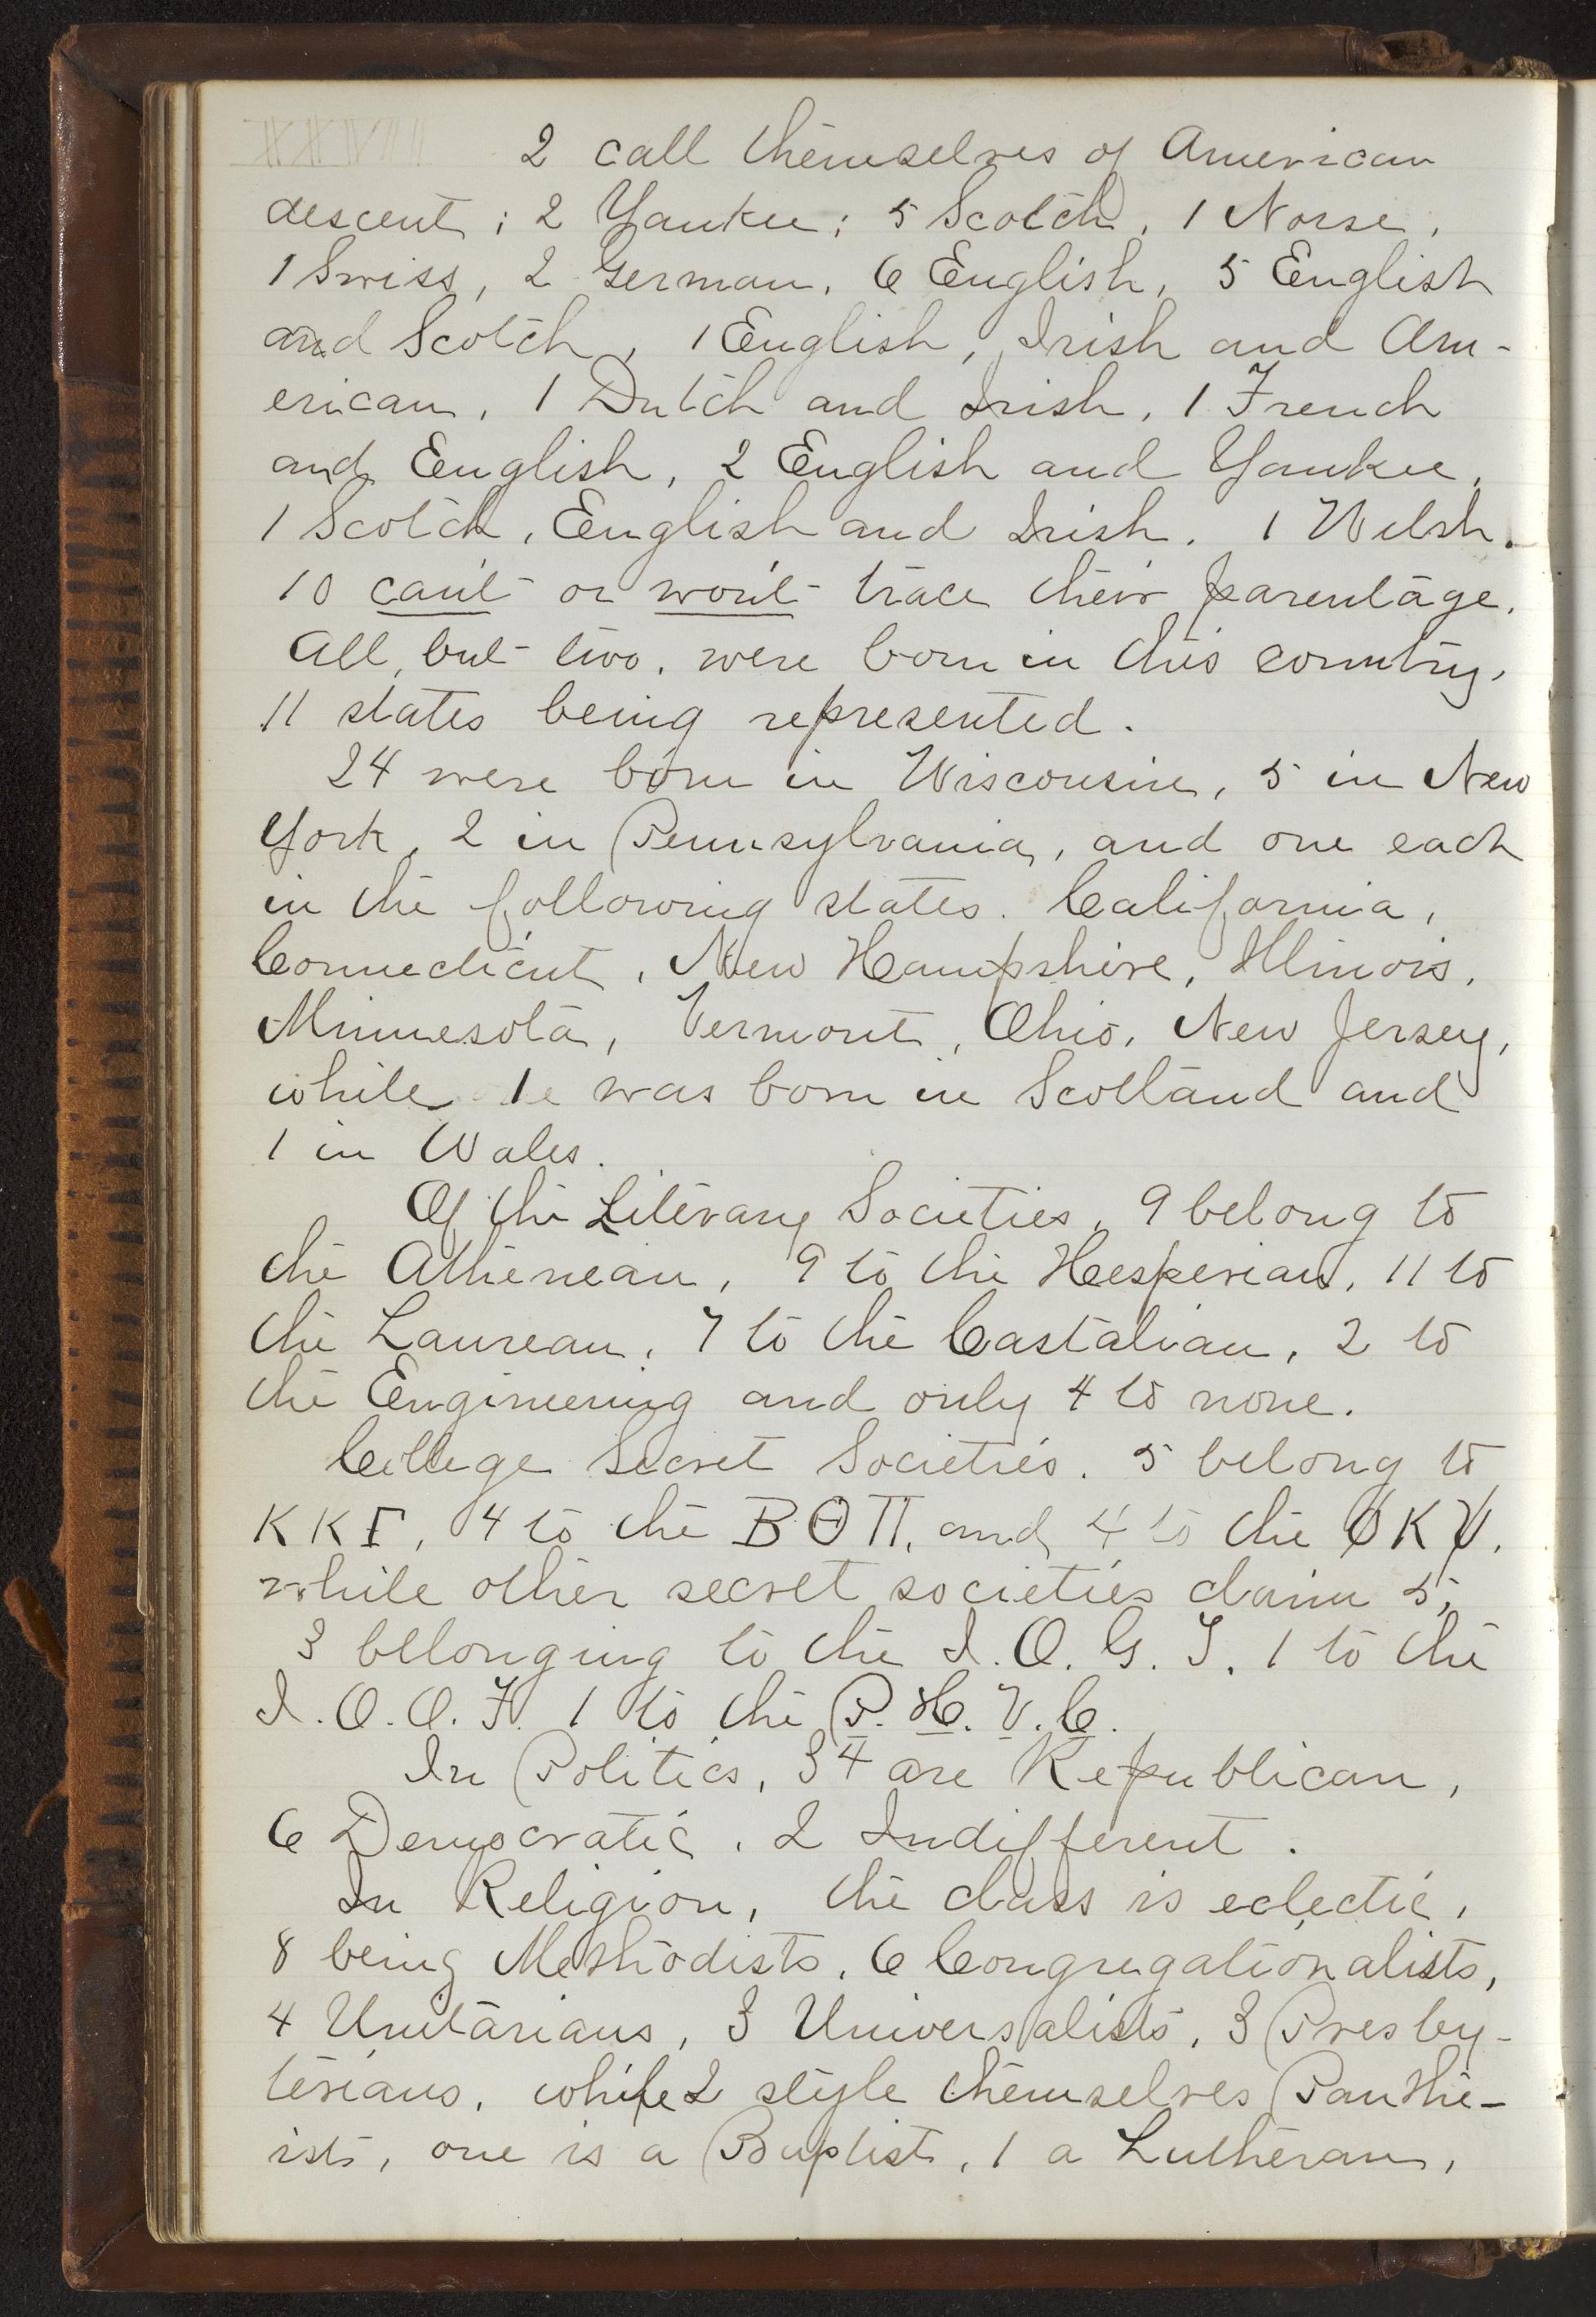 XXVII
2 call themselves of American
descent; 2 Yankee; 5 Scotch, 1 Norse,
1 Swiss, 2 German, 6 English, 5 English
and Scotch, 1 English, Irish and Am-
erican, 1 Dutch and Irish, 1 French
and English, 2 English and Yankee,
1 Scotch, English and Irish. 1 Welsh.
10 can't or won't trace their parentage.
All, but two, were born in this country,
11 states being represented.
24 were born in Wisconsin, 5 in New
York, 2 in Pennsylvania, and one each
in the following states. California,
Connecticut, New Hampshire, Illinois,
Minnesota, Vermont, Ohio, New Jersey,
while 1 was born in Scotland and
1 in Wales.
Of the Literary Societies, 9 belong to
the Athenean, 9 to the Hesperian, 11 to
the Laurean, 7 to the Castalian, 2 to
the Engineering and only 4 to none.
College Secret Societies. 5 belong to
KKΓ, 4 to the BΘΠ, and 4 to the ΦKΨ,
while other secret societies claim 5;
3 belonging to the I.O.G.T. 1 to the
I.O.O.F. 1 to the P.H.V.C.
In Politics, 34 are Republican,
6 Democratic, 2 Indifferent.
In Religion, the class is eclectic,
8 being Methodists, 6 Congregationalists,
4 Unitarians, 3 Universalists, 3 Presby-
terians, while 2 style themselves Panthe-
ists, one is a Baptist, 1 a Lutheran,